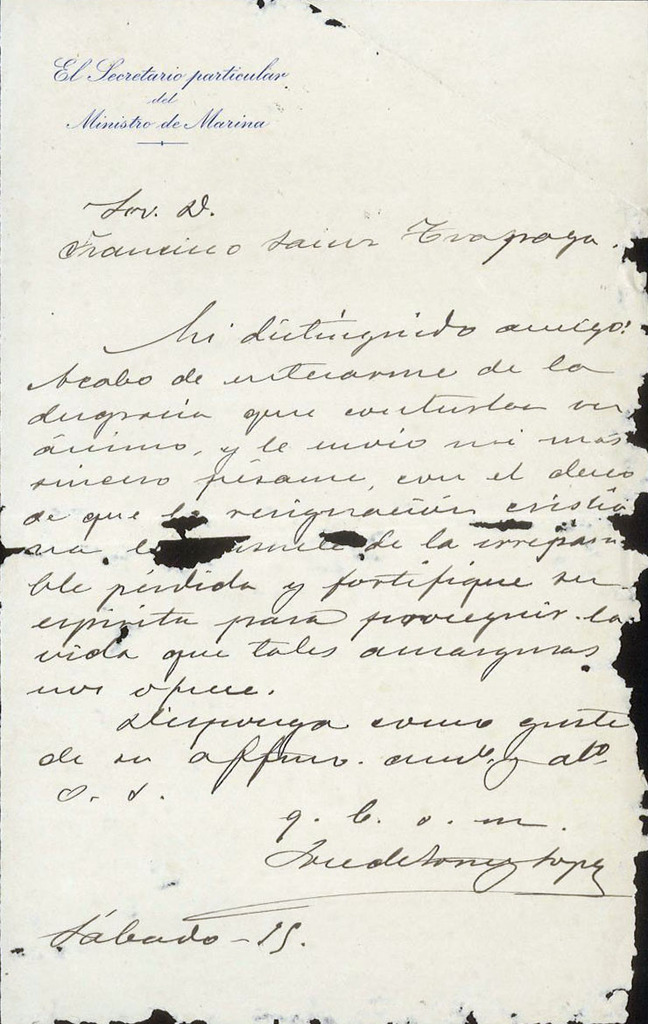 El Secretario particular
del
Ministro de Marina
Sor. D.
Francisco Sainz Trapaga.
Mi distinguido amigo:
Acabo de enterarme de la
desgracia que conturba su
ánimo, y le envio mi mas
sincero pésame, con el deseo
de que la resignación cristia
na le de la irrepara
ble pérdida y fortifique su
espiritu para proseguir la
vida que tales amarguras
nos ofrece.
Disponga como guste
de su affmo. amº. y atº
s. s.
q. b. s. m.
Sábado - 15.